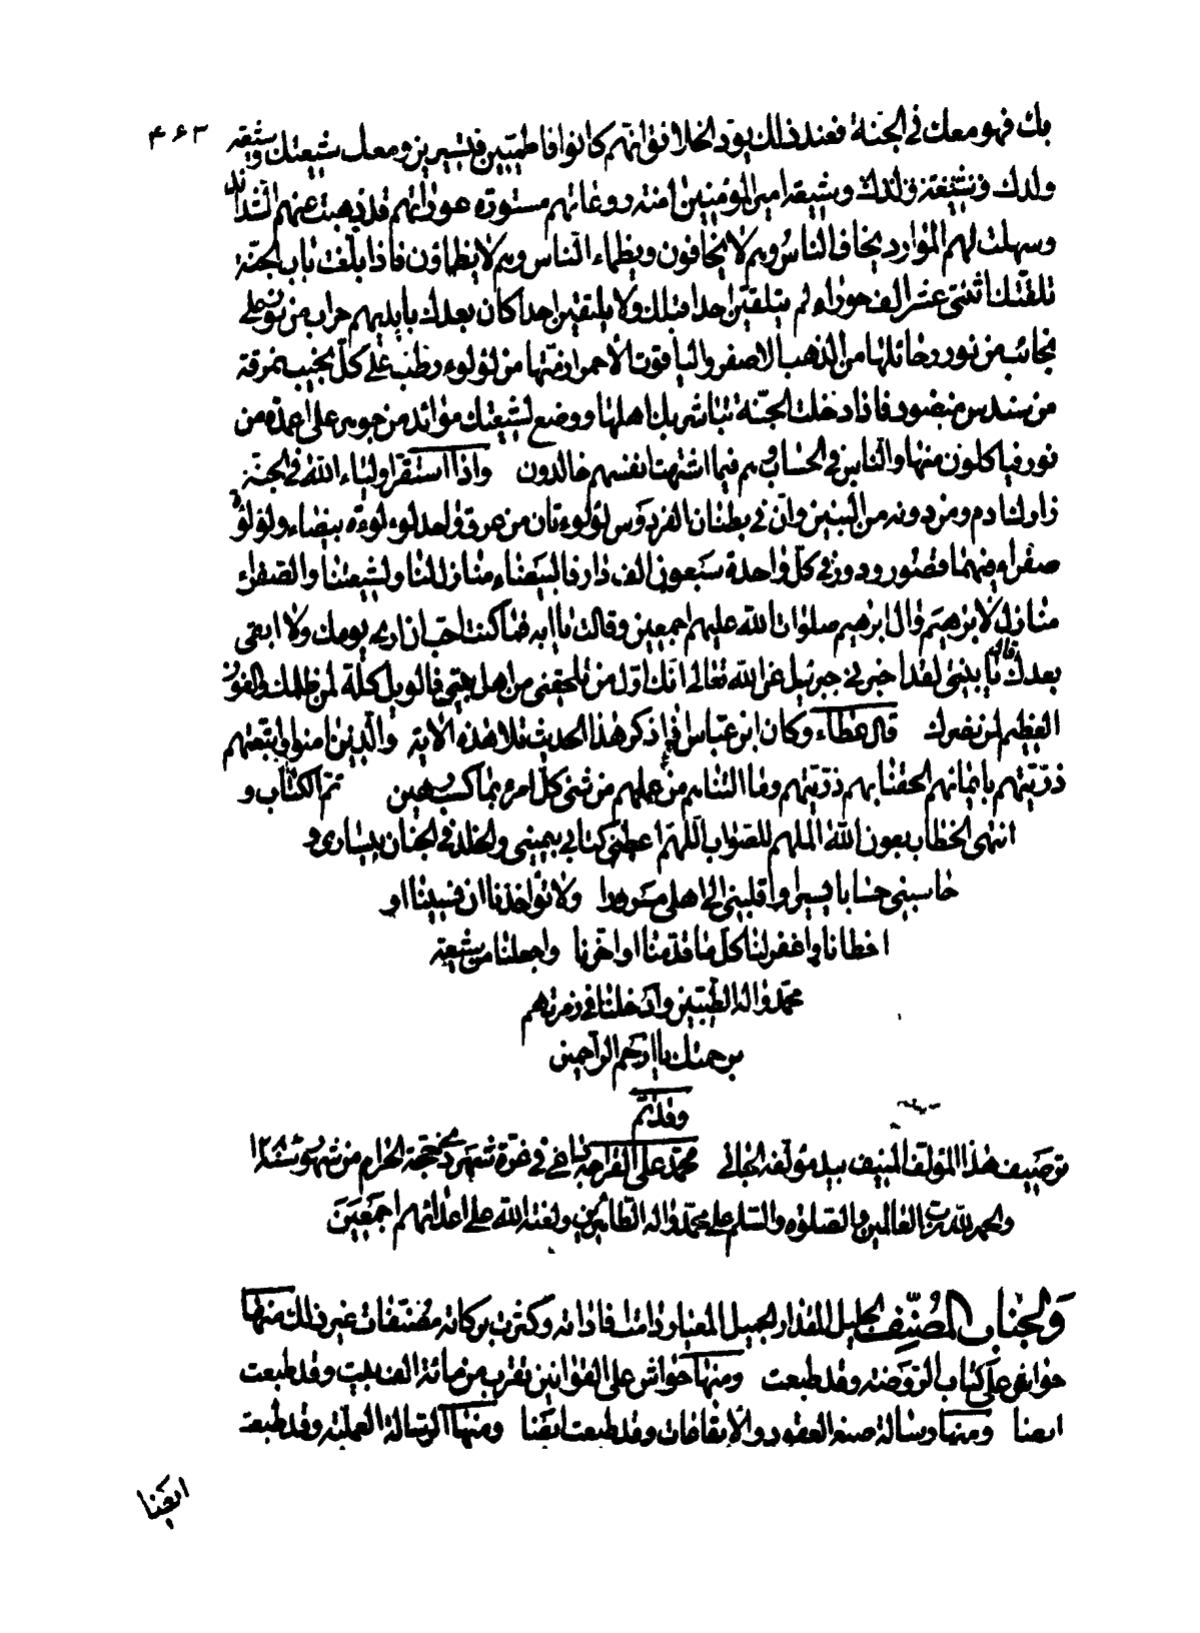 ۴۶۳
بك فهو معك في الجنة فعند ذلك يود الخلائق انهم كانوا فاطميين فتسيرين ومعك شيعتك وشيعة
ولدك وشيعة امير المؤمنين امنة روعاتهم مستورة عوراتهم قد ذهبت عنهم الشدائد
وسهلت لهم الموارد يخاف الناس وهم لا يخافون ويظماء الناس وهم لا يظماؤن فاذا بلغت باب الجنة
تلقتك اثنتى عشر الف حوراء لم يتلقين احدا قبلك ولا يلتقين احدا كان بعدك بايديهم حراب من نور على
نجائب من نور رحائلها من الذهب الاصفر والياقوت الأحمر ازمتها من لؤلوء رطب على كل نجيب نمرقة
من سندس منضود فاذا دخلت الجنة تباشر بك اهلها ووضع لشيعتك موائد من جوهر على اعمدة من
نور فياكلون منها والناس في الحساب وهم فيما اشتهت انفسهم خالدون واذا استقر اولياء الله في الجنة
زارك ادم ومن دونه من النبيين وان في بطنان الفردوس لؤلوءتان من عرق واحد لوءلوءة بيضاء ولؤلؤة
صفراء فيهما قصور ودور في كل واحدة سبعون الف دار فالبيضاء منازل لنا ولشيعتنا والصفراء
منازل لابرهيم وال ابرهيم صلوات الله عليهم اجمعين وقالت يا ابه فما كنت احب ان ارى يومك ولا ابقى
بعدك قال يا بنيتى لقد اخبرني جبرئيل عن الله تعالى انك اول من تلحقنى من اهل بيتي فالويل كله لمن ظلمك والفوز
العظيم لمن نصرك قال عطاء وكان ابن عباس اذا ذكر هذا الحديث تلا هذه الاية والذين امنوا واتبعتهم
ذريتهم بايمانهم الحقنا بهم ذريتهم وما التناهم من عملهم من شئ كل امرء بما كسب رهين تم الكتاب و
انتهى الخطاب بعون الله الملهم للصواب اللهم اعطنى كتابي بيمينى والخلد في الجنان بيسارى و
حاسبنى حسابا يسيرا واقلبنى الى اهلى مسرورا ولا تؤاخذنا ان نسينا او
اخطانا واغفر لنا كل ما قدمنا او اخرنا واجعلنا من شيعة
محمد واله الطيبين وادخلنا في زمرتهم
برحمتك يا ارحم الراحمين
وقد تم
توصيف هذا المؤلف المنيف بيد مؤلفه الجاني محمد على القراجه داغى في غرة شهر ذيحجة الحرام من شهور سنه ۱۲۸
والحمد لله رب العالمين والصلوة والسلم على محمد واله الطاهرين ولعنة الله على اعدائهم اجمعين
ولجناب المصنف الجليل المقدار الجميل المعيار دامت افاداته وكثرت بركاته مصنفات غير ذلك منها
حواش على كتاب الروضة وقد طبعت ومنها حواش على القوانين تقرب من مائة الف بيت وقد طبعت
ايضا ومنها رسالة صيغ العقود والايقاعات وقد طبعت ايضا ومنها الرسالة العملية وقد طبعت
ايضا